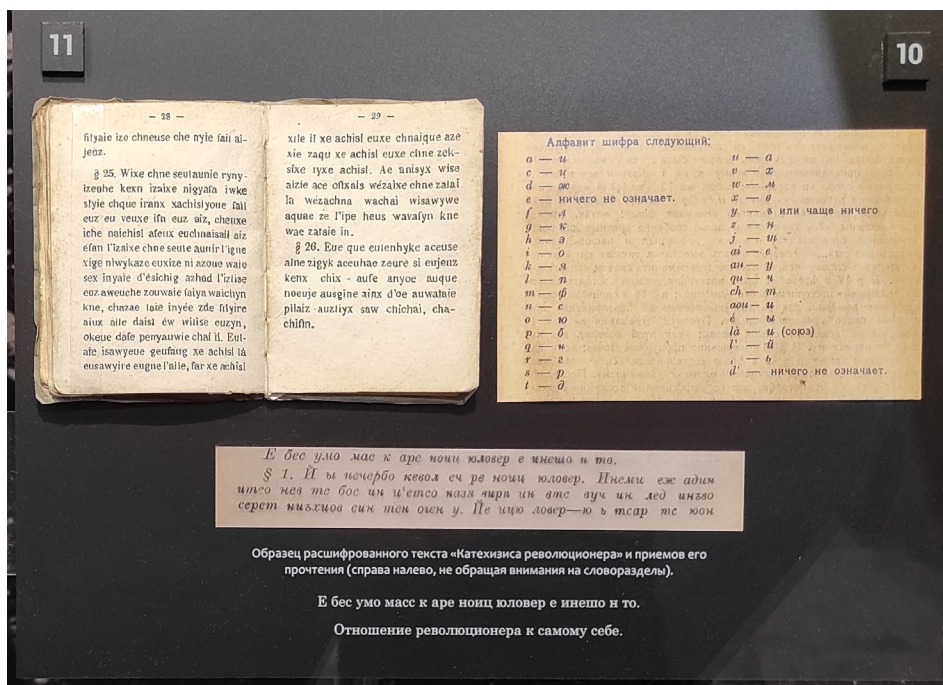 11
10
— 28 —
filyaie ize chneuse che nyie fail ai-
jenz.
§ 25. Wixe chne seulaunie ryny-
izeuhe kexn izaixe nigyafa iwke
slyie chque iranx xachislyoue fail
euz eu veuxe ifn euz aiz, cheuxe
iche naichisl afeux euchnaisail aiz
efan l'izaixe chne seule aunir l'igne
xige niwykaze euxize ni azoue waie
sex inyaie d'ésichig azhad l'izlise
euz aweuche zouwaie faiya waichyn
kne, chazae laie inyée zde filyire
aiux aile daisl éw wilise euzyn,
okeue dafe penyauwie chal il. Eul-
ate isawyeue geufaug xe achisl là
eusawyire eugne l'aile, far xe achisl
— 29 —
xile if xe achisl euxe chnaique aze
xie zaqu xe achisl euxe chne zek-
sixe lyxe achisl. Ae anisyx wise
aizie ace oflxais wézaixe chne zalai
la wézachna wachai wisawywe
aquae ze l'ipe heus wavafyn kne
wae zataie in.
§ 26. Eue que eutenhyke aceuse
alne zigyk aceuhae zeure si eujeuz
kenx chix - aufe anyoe auque
noeuje ausgine ainx d'oe auwalaie
pilaiz auzliyx saw chichai, cha-
chifln.
Алфавит шифра следующий:
a — и
c — ц
d — ж
e — ничего не означает.
f — л
g — к
h — з
i — о
k — я
l — п
m — ф
n — с
o — ю
p — б
q — н
r — г
s — р
t — д
u — а
v — х
w — м
x — в
y — ъ или чаще ничего
z — н
j — щ
ai — е
au — у
qu — ч
ch — т
aou — и
é — ы
là — и (союз)
l' — й
, — ь
d' — ничего не означает.
Е бес умо мас к аре ноиц юловер е инешо н то.
§ 1. Й ы печербо кевол еч ре ноиц юловер. Инеми еж адин
серет ниъхиов син тен оıен у. Йе ицю ловер—ю ь тсар тс юон
Образец расшифрованного текста «Катехизиса революционера» и приемов его
прочтения (справа налево, не обращая внимания на словоразделы).
Е бес умо масс к аре ноиц юловер е инешо н то.
Отношение революционера к самому себе.